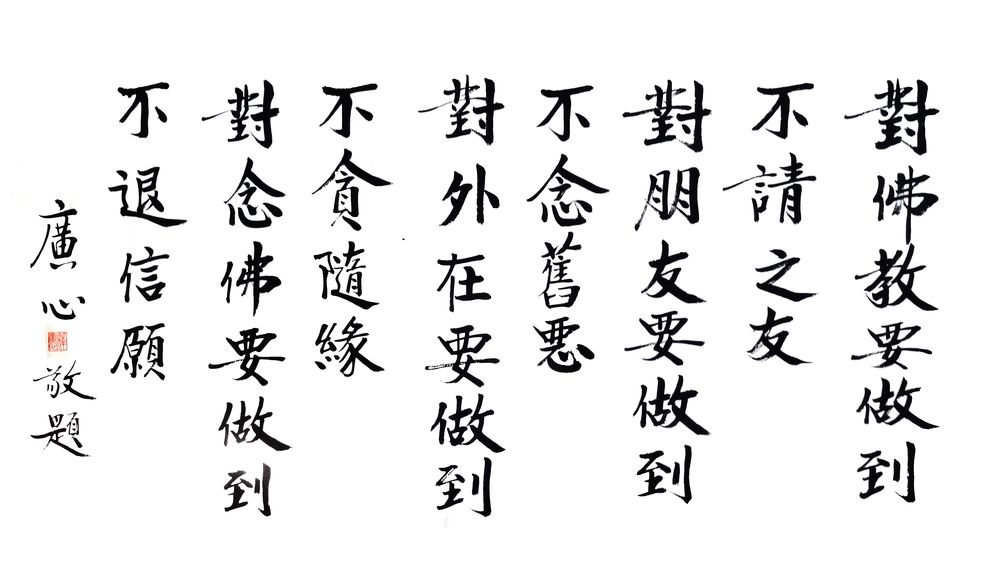 對佛教要做到
不請之友
對朋友要做到
不念舊惡
對外在要做到
不貪隨緣
對念佛要做到
不退信願
廣心敬題